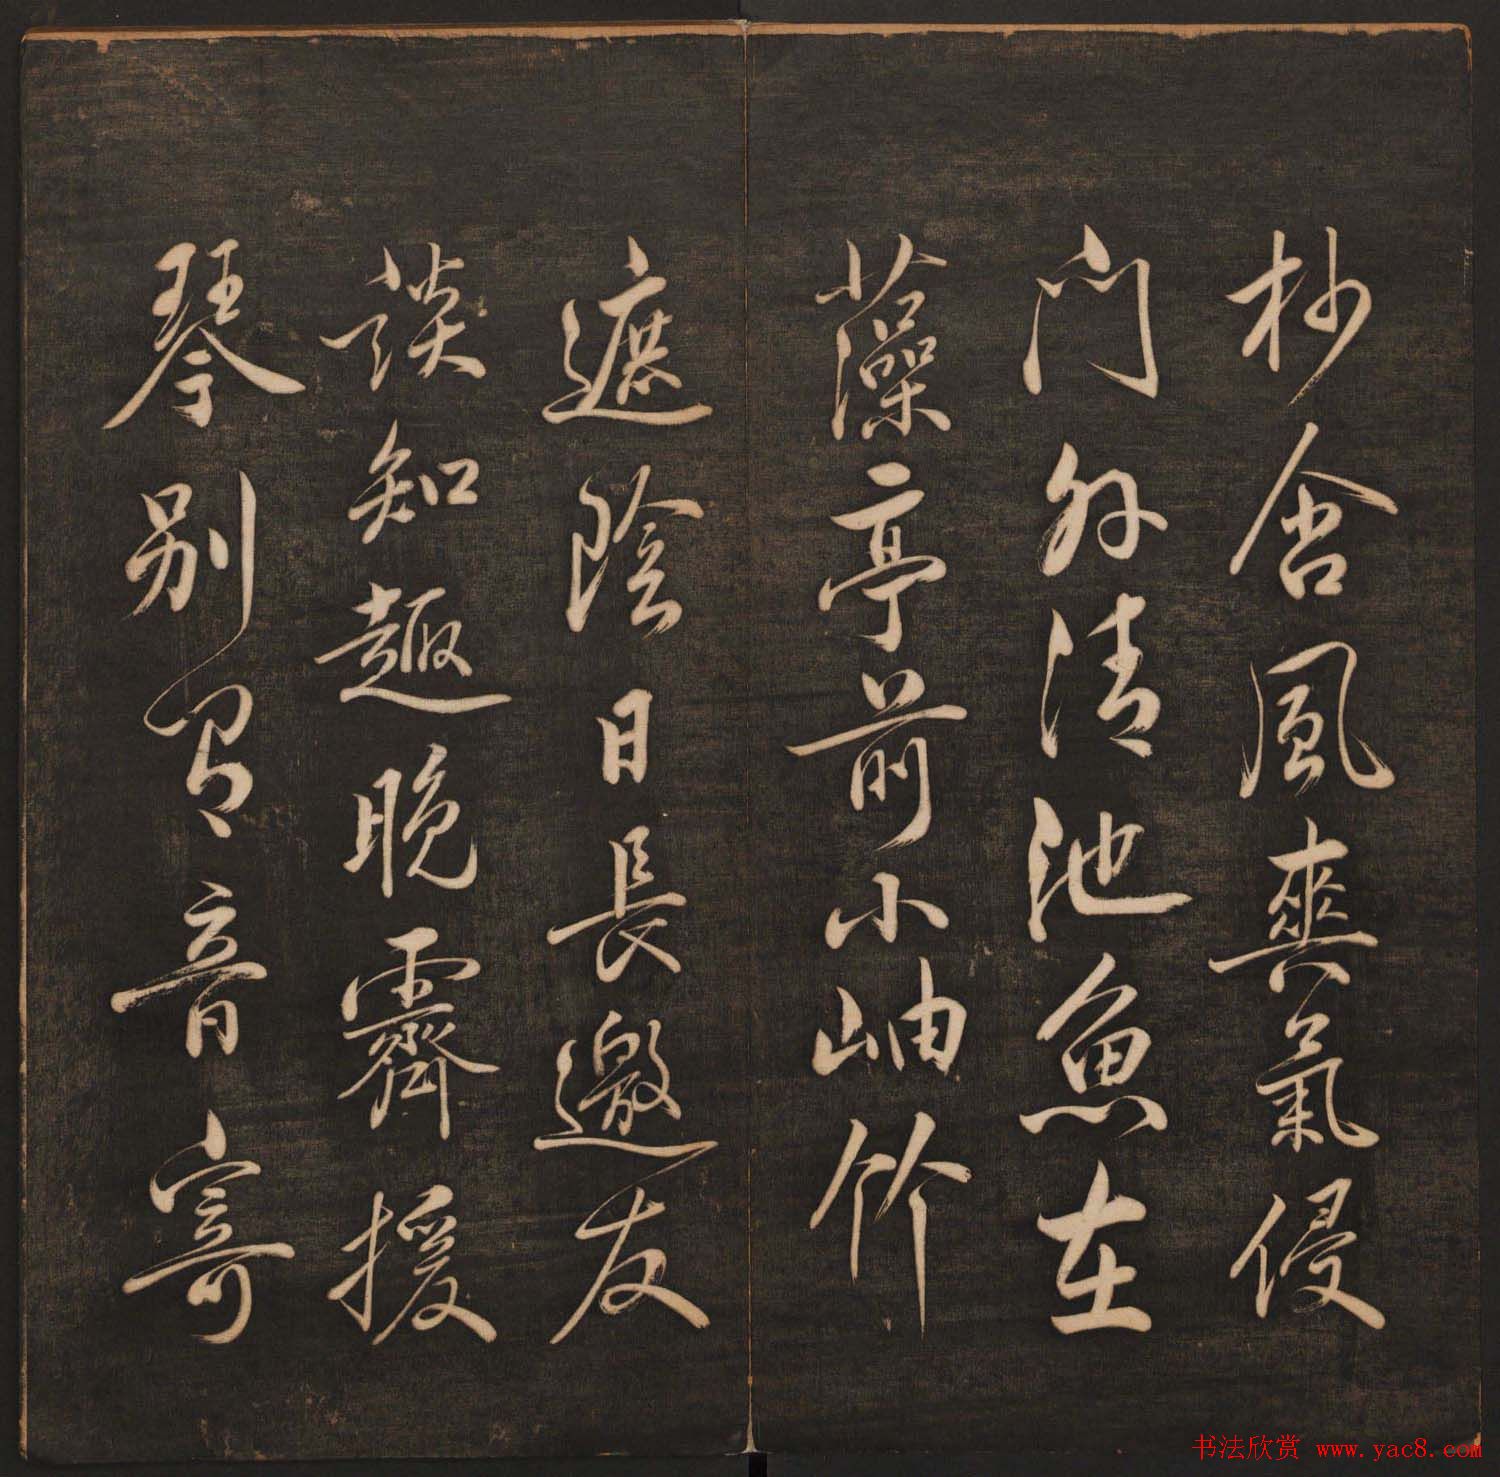 杪含風爽氣侵
门外清池魚在
藻亭前小岫竹
遮陰日長邀友
知趣晚霽援
琴別有音寄
书法欣赏 www.yac8.com